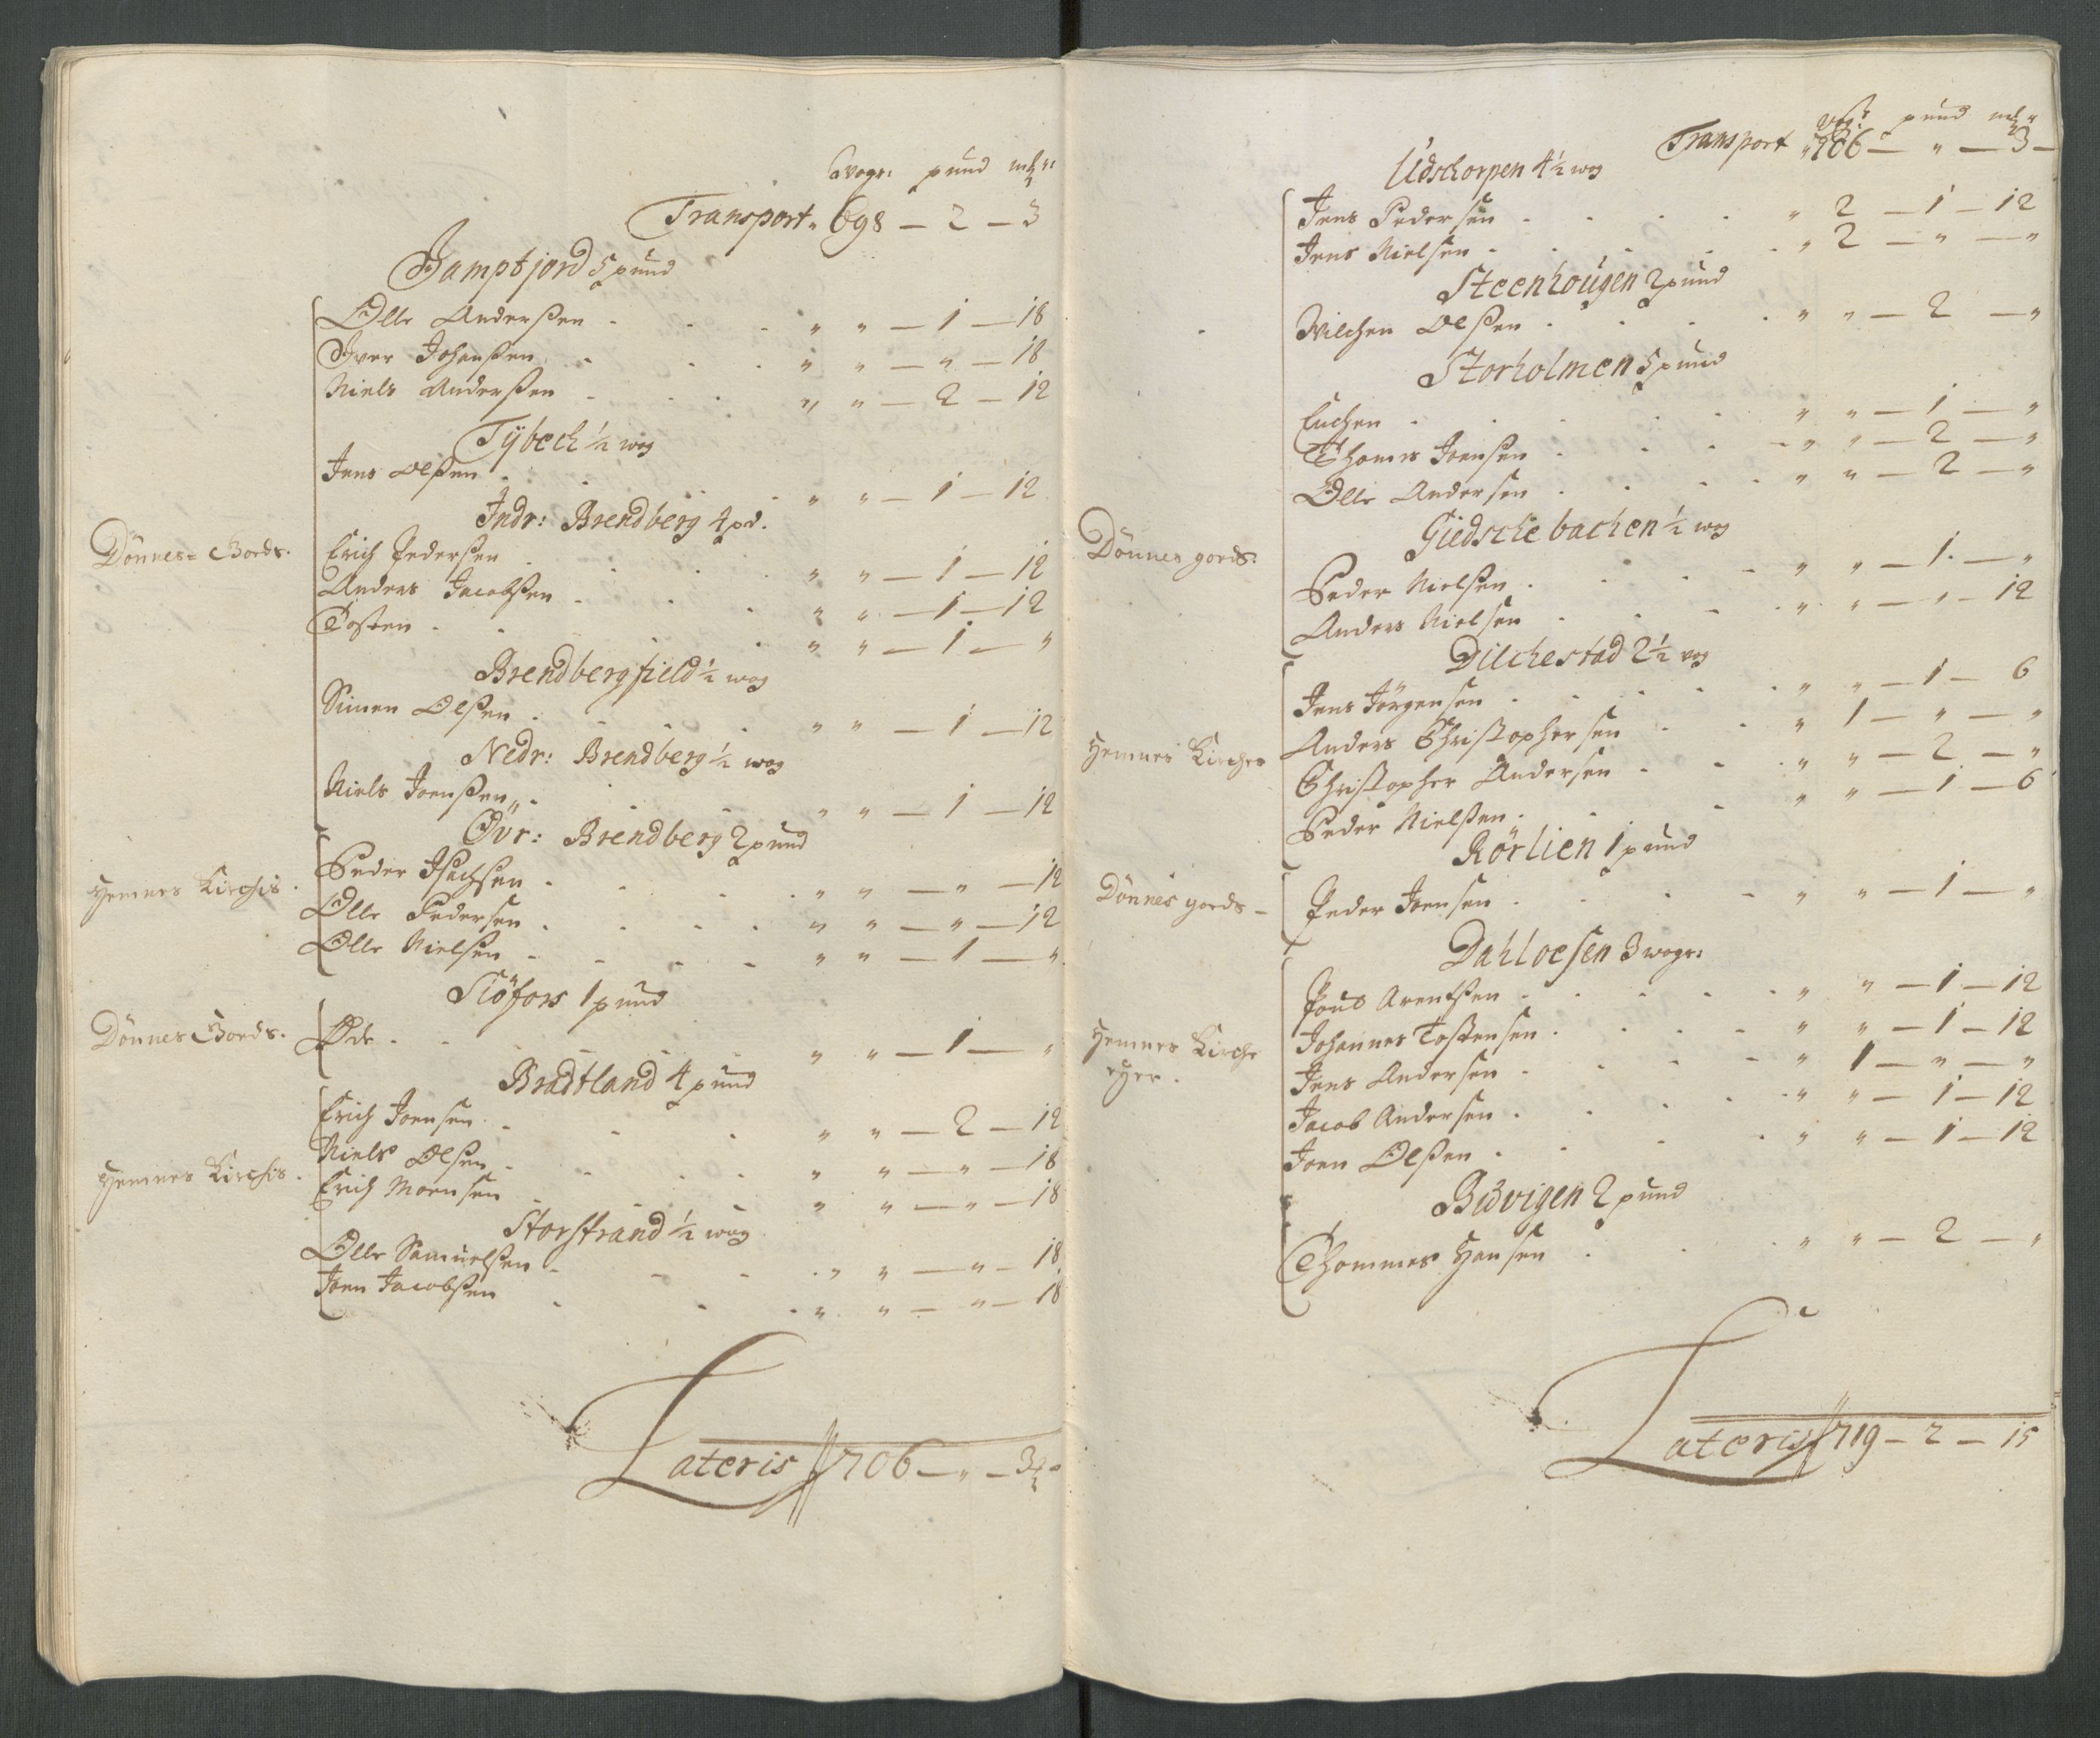 wogr: pund mkr:
Transport „ 698 — 2 — 3
Jampfjord 5 pund
Olle Anderßen . . . „ „ — 1 — 18
Iver Johanßen . . . „ „ — „ — 18
Niels Anderßen . . . „ „ — 2 — 12
Tÿbech ½ wog
Jens Olßen . . . „ „ — 1 — 12
Indr: Brendberg 4 pd.
Dönnes = Gords.
Erich Pederßen . . . „ „ — 1 — 12
Anders Jacobßen . . . „ „ — 1 — 12
Tosten . . . „ „ — 1 — „
Brendbergfield ½ wog
Simen Olßen . . . „ „ — 1 — 12
Nedr: Brendberg ½ wog
Niels Joenßen „ . . . „ „ — 1 — 12
Øvr: Brendberg 2 pund
Hemnes Kirchis .
Peder Isachsen . . . „ „ — „ — 12
Olle Pedersen . . . „ „ — „ — 12
Olle Nielsen . . . „ „ — 1 — „
Siöfors 1 pund
Dönnes Gords.
Øde . . . „ „ — 1 — „
Bradtland 4 pund
Erich Joensen . . . „ „ — 2 — 12
Niels Olsen . . . „ „ — „ — 18
Hemnes Kirchis .
Erich Moensen . . . „ „ — „ — 18
Storstrand ½ wog
Olle Samuelßen . . . „ „ — „ — 18
Joen Jacobßen . . . „ „ — „ — 18
Lateris 706 — „ — 3
pund
Transport „ 706 — „ — 3 —
Udschorpen 4½ wog
Jens Pedersen . . . „ 2 — 1 — 12
Jens Nielsen . . . „ 2 — „ — „
Steenhougen 2 pund
Wilchen Olßen . . . „ „ — 2 — „
Storholmen 5 pund
Enchen . . . „ „ — 1 — „
Thomas Joensen . . . „ „ — 2 — „
Olle Andersen . . . „ „ — 2 — „
Giedsche bachen ½ wog
Dönnes gords:
Peder Nielsen . . . „ „ — 1 — „
Anders Nielsen . . . „ „ — „ — 12
Dilchestad 2½ wog
Jens Jörgensen . . . „ „ — 1 — 6
Anders Christophersen . . . „ 1 — „ — „
Hemnes Kirches
Christopher Andersen . . . „ „ — 2 — „
Peder Nielßen . . . „ „ — 1 — 6
Rörlien 1 pund
Dönnes gords —
Peder Joensen . . . „ „ — 1 — „
Dahloesen 3 wogr:
Poul Arentßen . . . „ „ — 1 — 12
Johannes Tostensen . . . „ „ — 1 — 12
Hemnes Kirche
eyer .
Jens Andersen . . . „ 1 — „ — „
Jacob Andersen . . . „ „ — 1 — 12
Joen Olßen . . . „ „ — 1 — 12
2 pund
Thommes Hansen . . . „ „ — 2 — „
Lateris 719 — 2 — 15